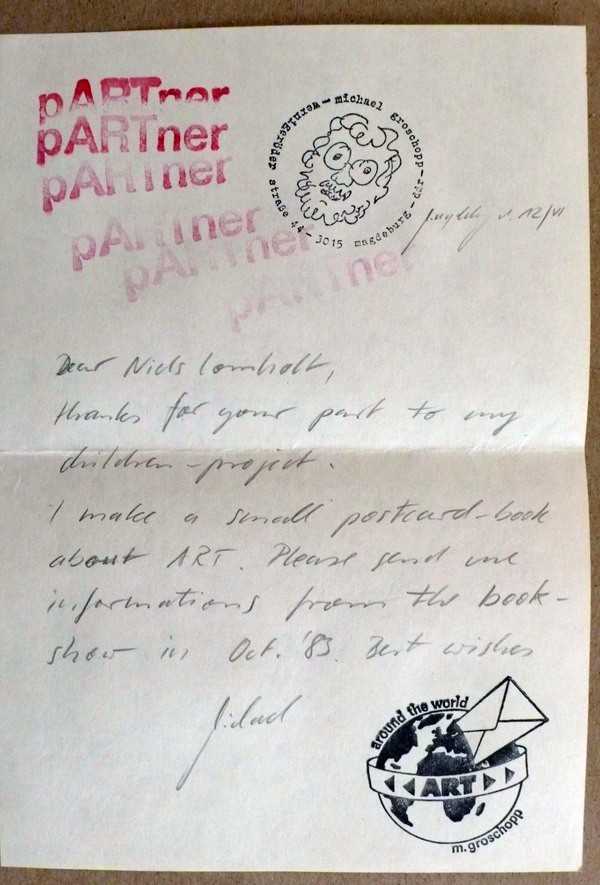 pARTner
pARTner
pARTner
pARTner
pARTner
pARTner
michael groschopp - ddr - 3015 magdeburg - wernigeröder straße 44
12/VI
Dear Niels Lomholt,
thanks for your part to my
children-project.
I make a small postcard-book
about ART. Please send me
informations from the book-
show in Oct. '83. Best wishes
around the world
ART
m.groschopp